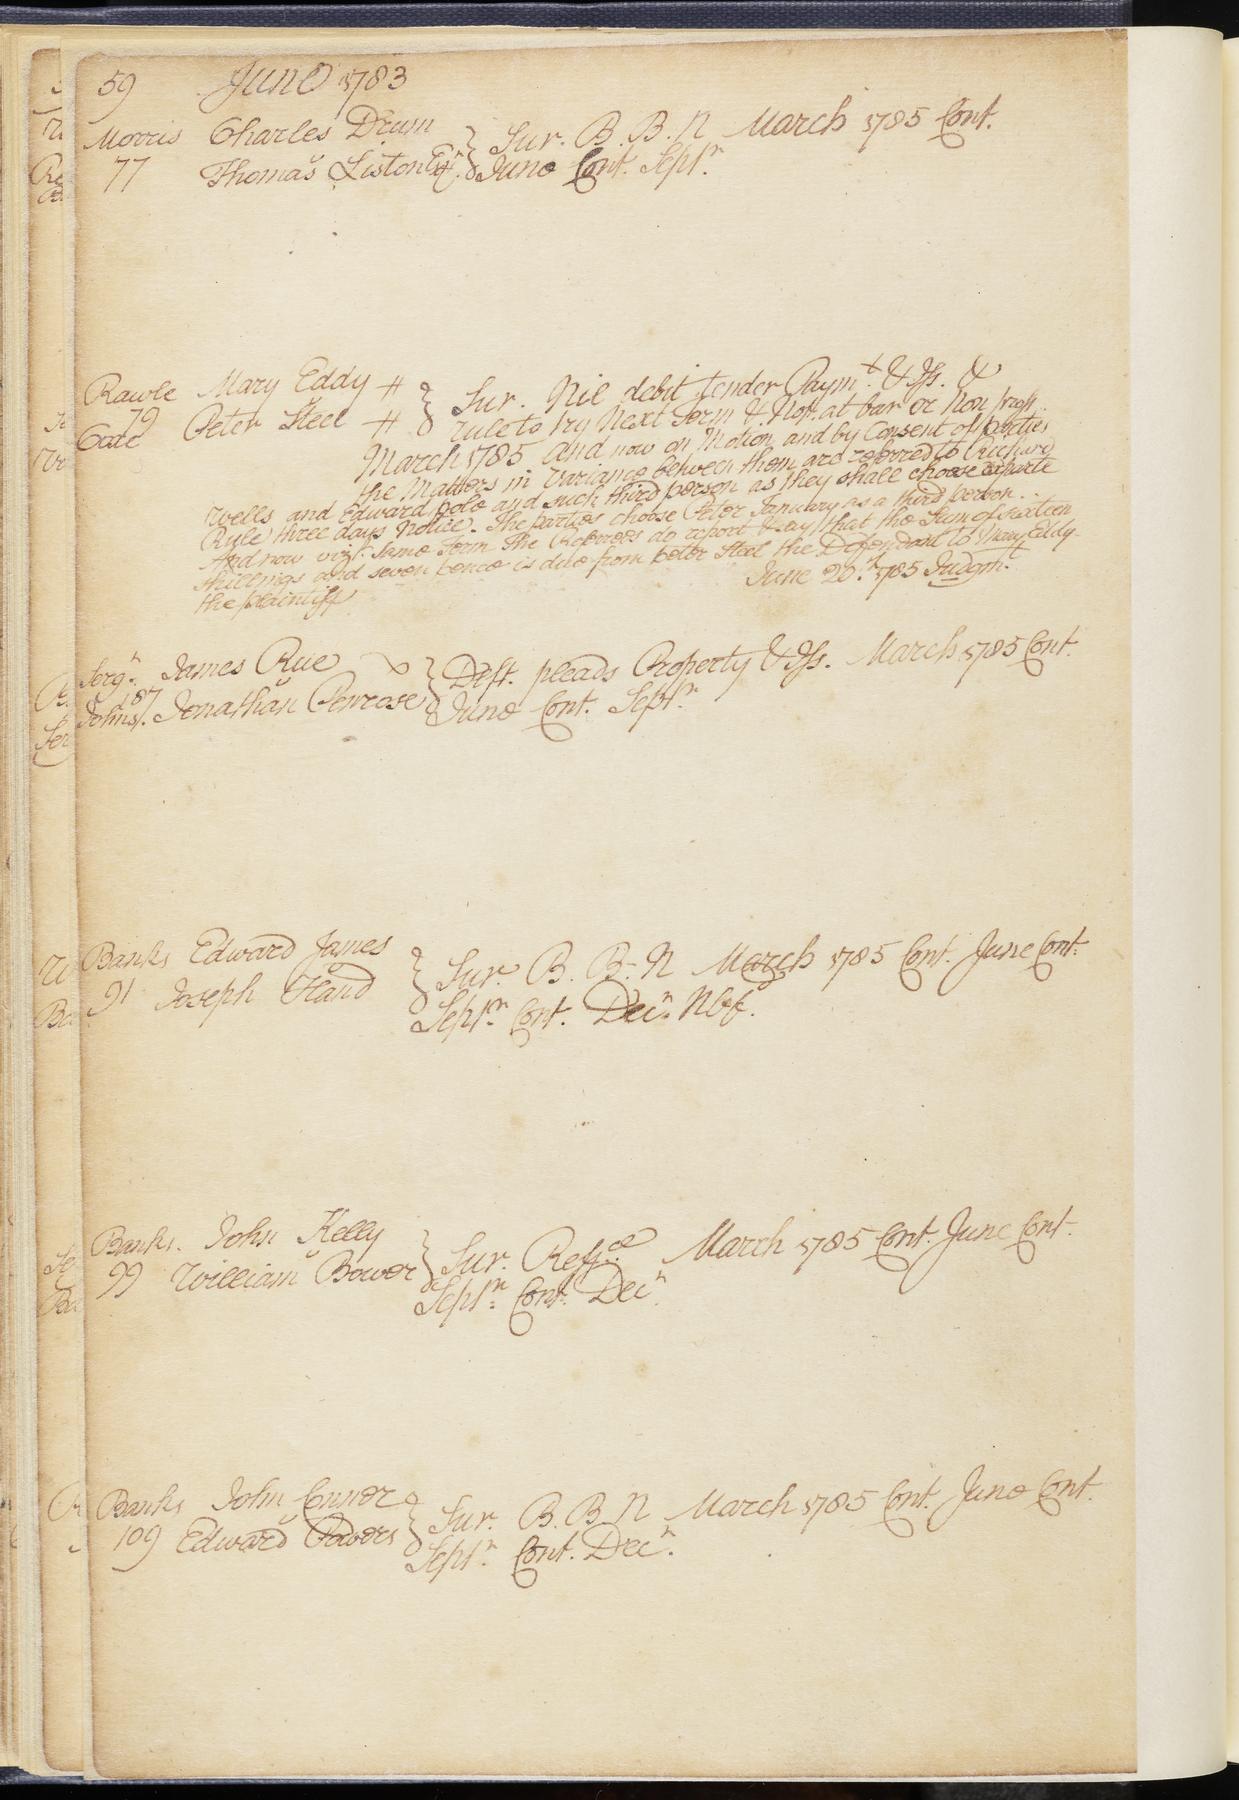 59 June 1783
Morris Charles Drum } Sur. B. B. N March 1785 Cont.
77 Thomas Liston Exr. } June Cont. Septr.
Rawle Mary Eddy + } Sur. Nil debit tender Paymt. & Iss. &
79 Peter Steel + } rule to try Next Term & Nor. at bar or Non pross.
Code
March 1785 And now on Motion and by Consent of parties
the Matters in Variance between them are referred to Richard
Wells and Edward pole and such third person as they shall choose exparte
Rule three days Notice. The parties choose Peter January as a third person..
And now vizt. same Term The Referees do report & say that the Sum of sixteen
shillings and seven pence is due from peter Steel the Defendant to Mary Eddy
the plaintiff June 20th. 1785 Judgmt.
Sergt. James Rue } Deft. pleads Property & Iss. March 1785 Cont.
187
Johns. Jonathan Penrose } June Cont. Septr.
Banks Edward James } Sur. B. B. N March 1785 Cont. June Cont.
91 Joseph Hand } Septr. Cont. Decr. Nbf.
Banks. John Kelly } Sur. Refce. March 1785 Cont. June Cont.
99 William Bower } Septr. Cont. Decr.
Banks John Conner } Sur. B. B. N March 1785 Cont. June Cont.
109 Edward Powers } Septr. Cont. Decr.